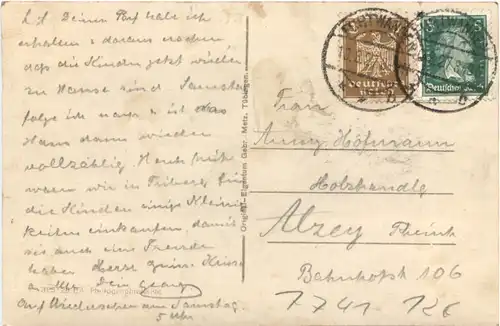 L. A. Deine Karte habe ich
erhalten & daraus ersehen
dass die Kinder jetzt wieder
zu Hause sind. Samstag
folge ich nach & ist das
Haus dann wieder
vollzählig. Heute früh
waren wir in Triberg für
die Kinder einige Kleinig-
keiten einkaufen, damit
sie auch eine Freude
haben. Herzl. Grüsse
Dein Georg
Auf Wiedersehen am Samstag
5 Uhr
Original-Eigentum Gebr. Metz, Tübingen.
FURTWANGEN
Deutsches Reich
Deutsches Reich
Frau
Anny Hofmann
Holzhandlg
Alzey Rheinh
Bahnhofst 106
7741